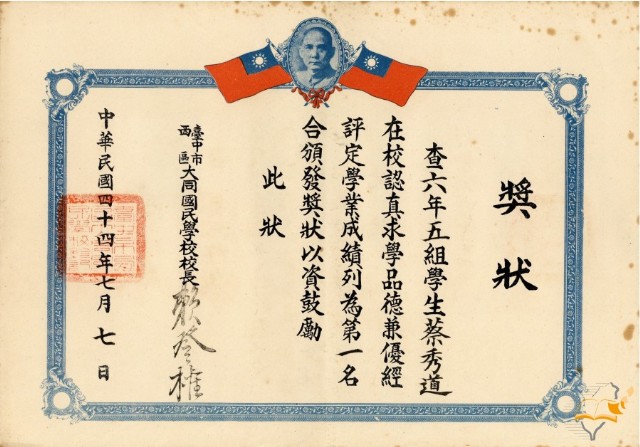 獎狀
查六年五組學生蔡秀道
在校認真求學品德兼優經
評定學業成績列為第一名
合頒發獎狀以資鼓勵
此狀
臺中市
西區大同國民學校校長
中華民國四十四年七月七日